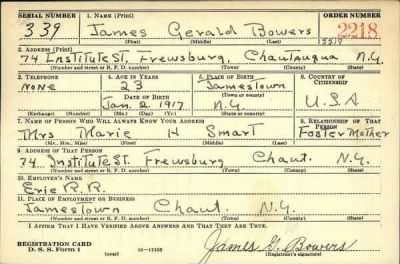 SERIAL NUMBER 1. NAME (Print) ORDER NUMBER
339 James Gerald Bowers 2218
(First) (Middle) (Last)
2. ADDRESS (Print)
74 Institute St. Frewsburg, Chautauqua N.Y.
(Number and street or R. F. D. number) (Town) (County) (State)
3. TELEPHONE 4. AGE IN YEARS 5. PLACE OF BIRTH 6. COUNTRY OF CITIZENSHIP
None 23 Jamestown
DATE OF BIRTH (Town or county)
Jan. 2 1917 N.Y. U.S.A
(Exchange) (Number) (Mo.) (Day) (Yr.) (State or country)
7. NAME OF PERSON WHO WILL ALWAYS KNOW YOUR ADDRESS 8. RELATIONSHIP OF THAT PERSON
Mrs Marie H Smart Foster Mother
(Mr., Mrs., Miss) (First) (Middle) (Last)
9. ADDRESS OF THAT PERSON
74 Institute St. Frewsburg Chaut. N.Y.
(Number and street or R. F. D. number) (Town) (County) (State)
10. EMPLOYER'S NAME
Erie R.R.
11. PLACE OF EMPLOYMENT OR BUSINESS
Jamestown Chaut. N.Y.
(Number and street or R. F. D. number) (Town) (County) (State)
I AFFIRM THAT I HAVE VERIFIED ABOVE ANSWERS AND THAT THEY ARE TRUE.
REGISTRATION CARD
D. S. S. Form 1 (over) 16-17105 James G. Bowers